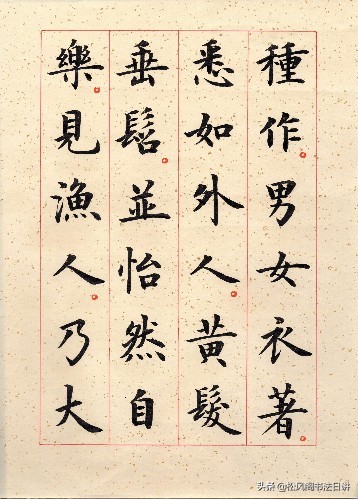 種作男女衣著
悉如外人黃髮
垂髫並怡然自
樂見漁人乃大
头条@松风阁书法日讲